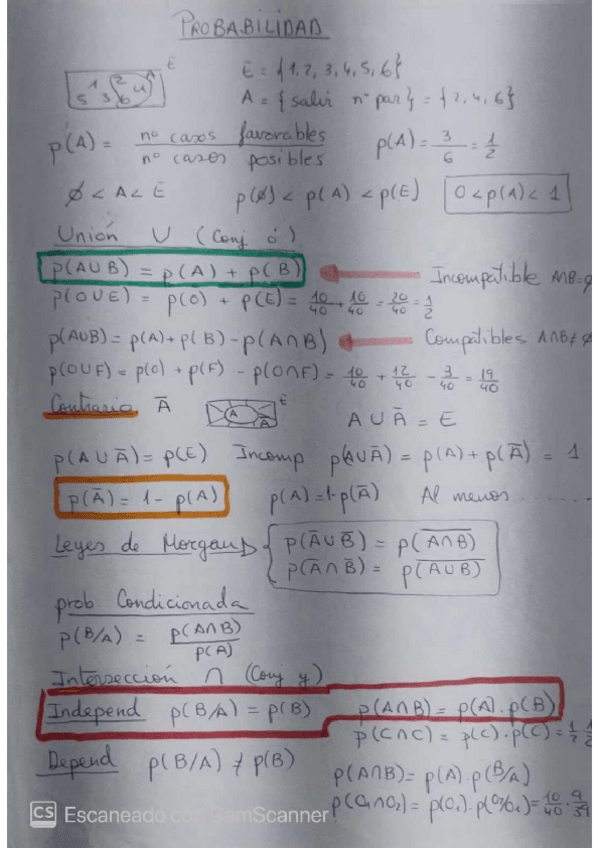 PROBABILIDAD
E
5 1 3 2 6 4 A
E = {1, 2, 3, 4, 5, 6}
A = {salir nº par} = {2, 4, 6}
p(A) = nº casos favorables / nº casos posibles p(A) = 3/6 = 1/2
∅ < A < E p(∅) < p(A) < p(E) 0 < p(A) < 1
Unión U (Conj ó)
p(A∪B) = p(A) + p(B) Incompatible A∩B=∅
p(O∪E) = p(O) + p(E) = 10/40 + 10/40 = 20/40 = 1/2
p(A∪B) = p(A) + p(B) - p(A∩B) Compatibles A∩B≠∅
p(O∪F) = p(O) + p(F) - p(O∩F) = 10/40 + 12/40 - 3/40 = 19/40
Contrario Ā A Ā E A ∪ Ā = E
p(A∪Ā) = p(E) Incomp p(A∪Ā) = p(A) + p(Ā) = 1
p(Ā) = 1 - p(A) p(A)=1-p(Ā) Al menos .......
Leyes de Morgan
p(Ā∪B̅) = p(A̅∩̅B̅)
p(Ā∩B̅) = p(A̅∪̅B̅)
prob Condicionada
p(B/A) = p(A∩B) / p(A)
Intersección ∩ (Conj y)
Independ p(B/A) = p(B) p(A∩B) = p(A) . p(B)
p(C∩C) = p(C) . p(C) = 1/2 1/2
Depend p(B/A) ≠ p(B)
p(A∩B) = p(A) . p(B/A)
p(O₁∩O₂) = p(O₁) . p(O₂/O₁) = 10/40 . 9/39
CS Escaneado con CamScanner